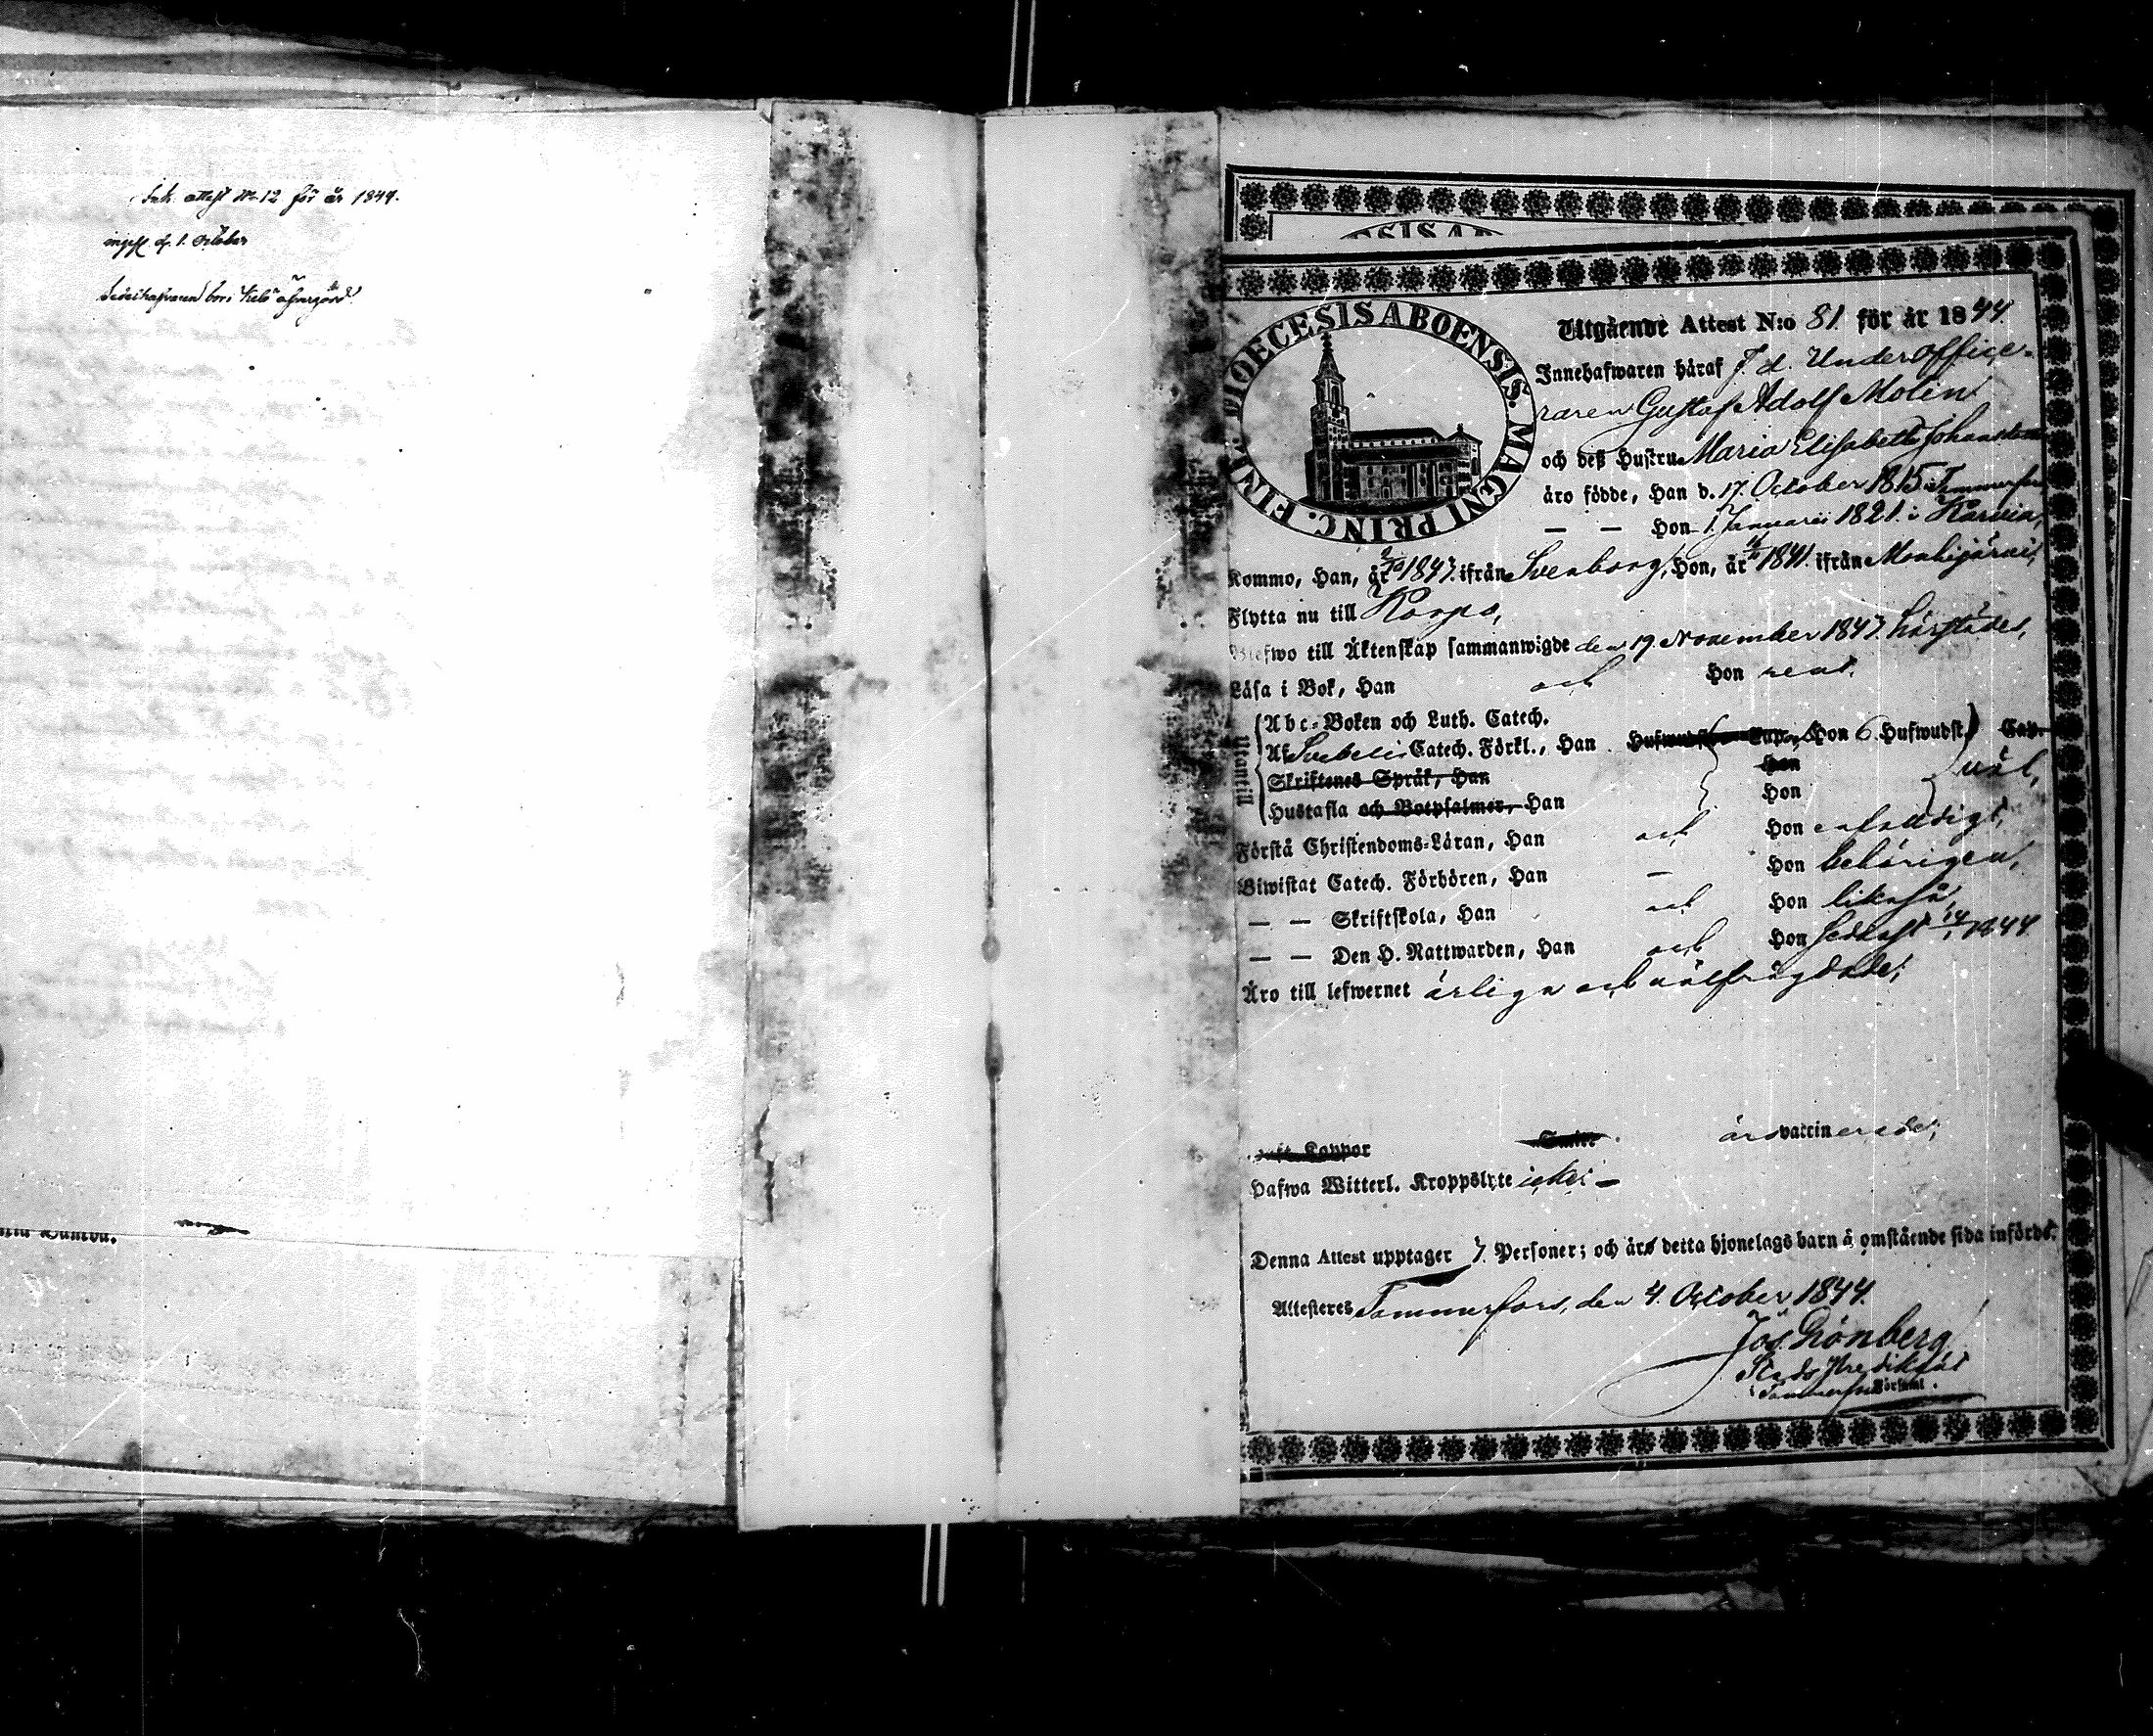 Ink. attest No 12 för år 1844.
d. 1. October
bor i
DIOECESIS ABOENSIS. MAGNI PRINC. FINL.
Utgående Attest N:o 81. för år 1844.
Innehafwaren häraf f. d. Underoffice-
raren Gustaf Adolf Molin
och deß Hustru Maria Elisabeth Johansdotter
äro födde, Han d. 17. October 1815 i Tammerfors
— — Hon 1. Januarii 1821. i Karvia,
Kommo, Han, år 2/10 1843. ifrån Sveaborg, Hon, år 1841. ifrån Mouhijärvi,
Flytta nu till Korpo,
Blefwo till Äktenskap sammanwigde den 19. November 1843. härstädes,
Läsa i Bok, Han och Hon rent.
Utantill
Abc-Boken och Luth. Catech.
Af Svebelii Catech. Förkl., Han Hufwudst. Cap. Hon 6 Hufwudst. Cap.
Skriftenes Språk, Han Hon väl,
Hustafla och Botpsalmer, Han Hon
Förstå Christendoms-Läran, Han och Hon enfaldigt,
Biwistat Catech. Förhören, Han — Hon behörigen,
— — Skriftskola, Han och Hon likaså,
— — Den H. Nattwarden, Han och Hon sednast 14/1 1844
Äro till lefwernet ärliga och välfrägdade;
haft Koppor äro vaccinerade;
Hafwa Witterl. Kroppslyte icke; —
Denna Attest upptager 7. Personer; och äro detta hjonelags barn å omstående sida införde.
Attesteres Tammerfors, den 4. October 1844.
Jos. Grönberg
Stads Predikant
i Tammerfors Församl.